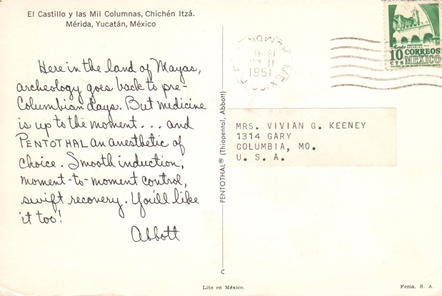 El Castillo y las Mil Columnas, Chichén Itzá.
Mérida, Yucatán, México
Here in the land of Mayas,
archeology goes back to pre-
Columbian days. But medicine
is up to the moment... and
PENTOTHAL an anesthetic of
choice. Smooth induction,
moment-to-moment control,
swift recovery. You'll like
it too!
Abbott
PENTOTHAL® (Thiopental, Abbott)
C
1961
10 CORREOS
MEXICO
MRS. VIVIAN G. KEENEY
1314 GARY
COLUMBIA, MO.
U. S. A.
Lito en México.
Fema, S. A.